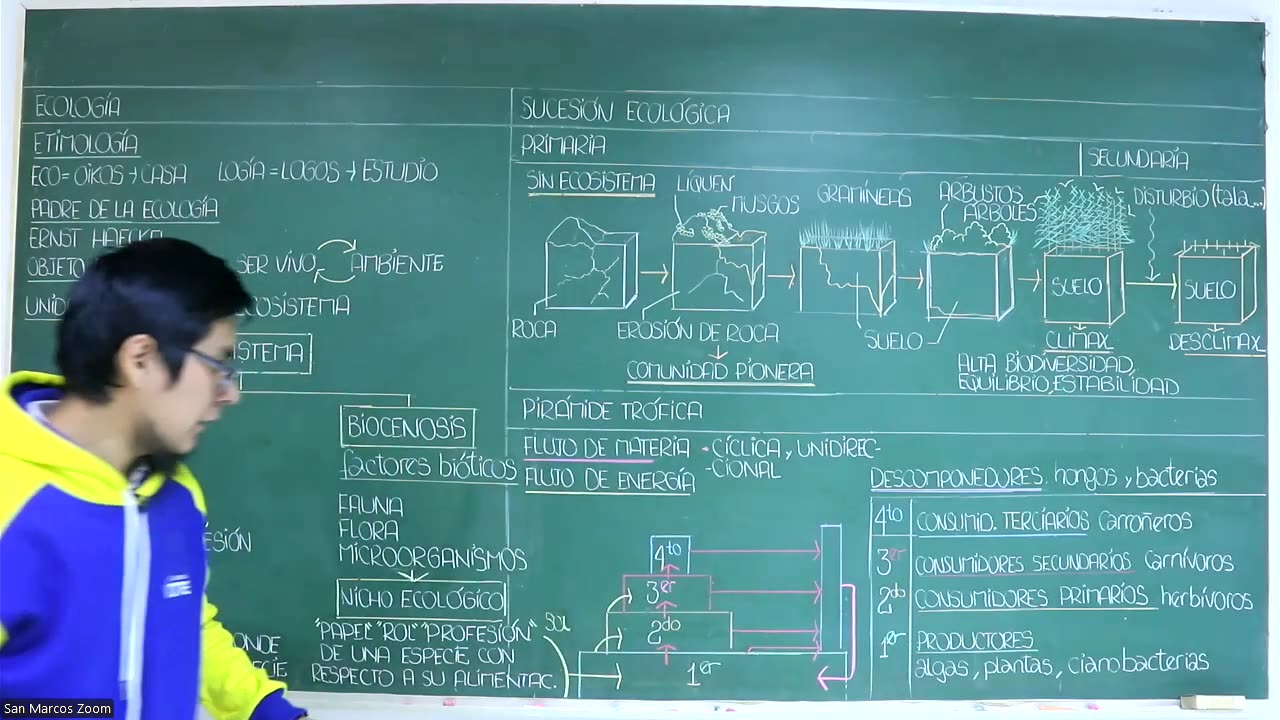 ECOLOGÍA
ETIMOLOGÍA
ECO= OIKOS → CASA LOGÍA = LOGOS → ESTUDIO
PADRE DE LA ECOLOGÍA
ERNST
OBJETO SER VIVO AMBIENTE
BIOCENOSIS
factores bióticos
FAUNA
FLORA
MICROORGANISMOS
NICHO ECOLÓGICO
"PAPEL" "ROL" "PROFESIÓN"
DE UNA ESPECIE CON
RESPECTO A SU ALIMENTAC.
SUCESIÓN ECOLÓGICA
PRIMARIA
SECUNDARIA
SIN ECOSISTEMA
LÍQUEN
MUSGOS
GRAMÍNEAS
ARBUSTOS
ÁRBOLES
DISTURBIO (tala...)
SUELO
SUELO
ROCA
EROSIÓN DE ROCA
SUELO
CLÍMAX
DESCLÍMAX
COMUNIDAD PIONERA
ALTA BIODIVERSIDAD,
EQUILIBRIO, ESTABILIDAD
PIRÁMIDE TRÓFICA
FLUJO DE MATERIA - CÍCLICA y UNIDIREC-
FLUJO DE ENERGÍA -CIONAL
DESCOMPONEDORES. hongos y bacterias
4to CONSUMID. TERCIARIOS Carroñeros
3er CONSUMIDORES SECUNDARIOS Carnívoros
2do CONSUMIDORES PRIMARIOS herbívoros
1er PRODUCTORES
algas, plantas, cianobacterias
4to
3er
2do
Sol
1er
San Marcos Zoom